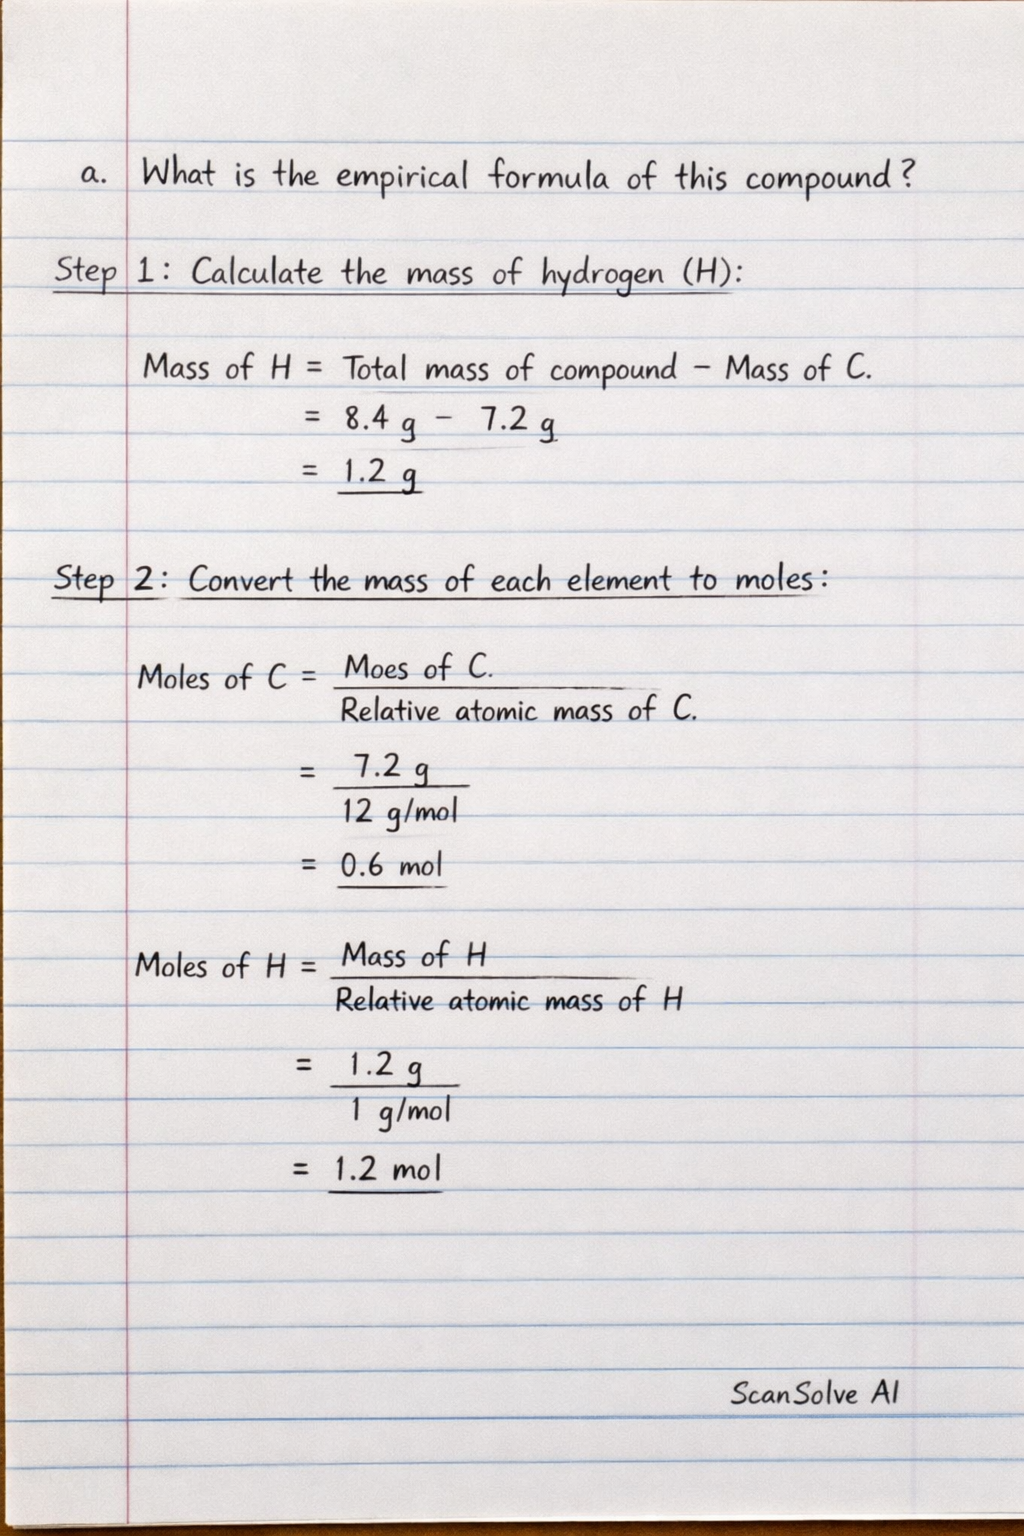 a. What is the empirical formula of this compound?
Step 1: Calculate the mass of hydrogen (H):
Mass of H = Total mass of compound − Mass of C.
= 8.4 g − 7.2 g
= 1.2 g
Step 2: Convert the mass of each element to moles:
Moles of C = Moes of C.
Relative atomic mass of C.
= 7.2 g
12 g/mol
= 0.6 mol
Moles of H = Mass of H
Relative atomic mass of H
= 1.2 g
1 g/mol
= 1.2 mol
ScanSolve AI